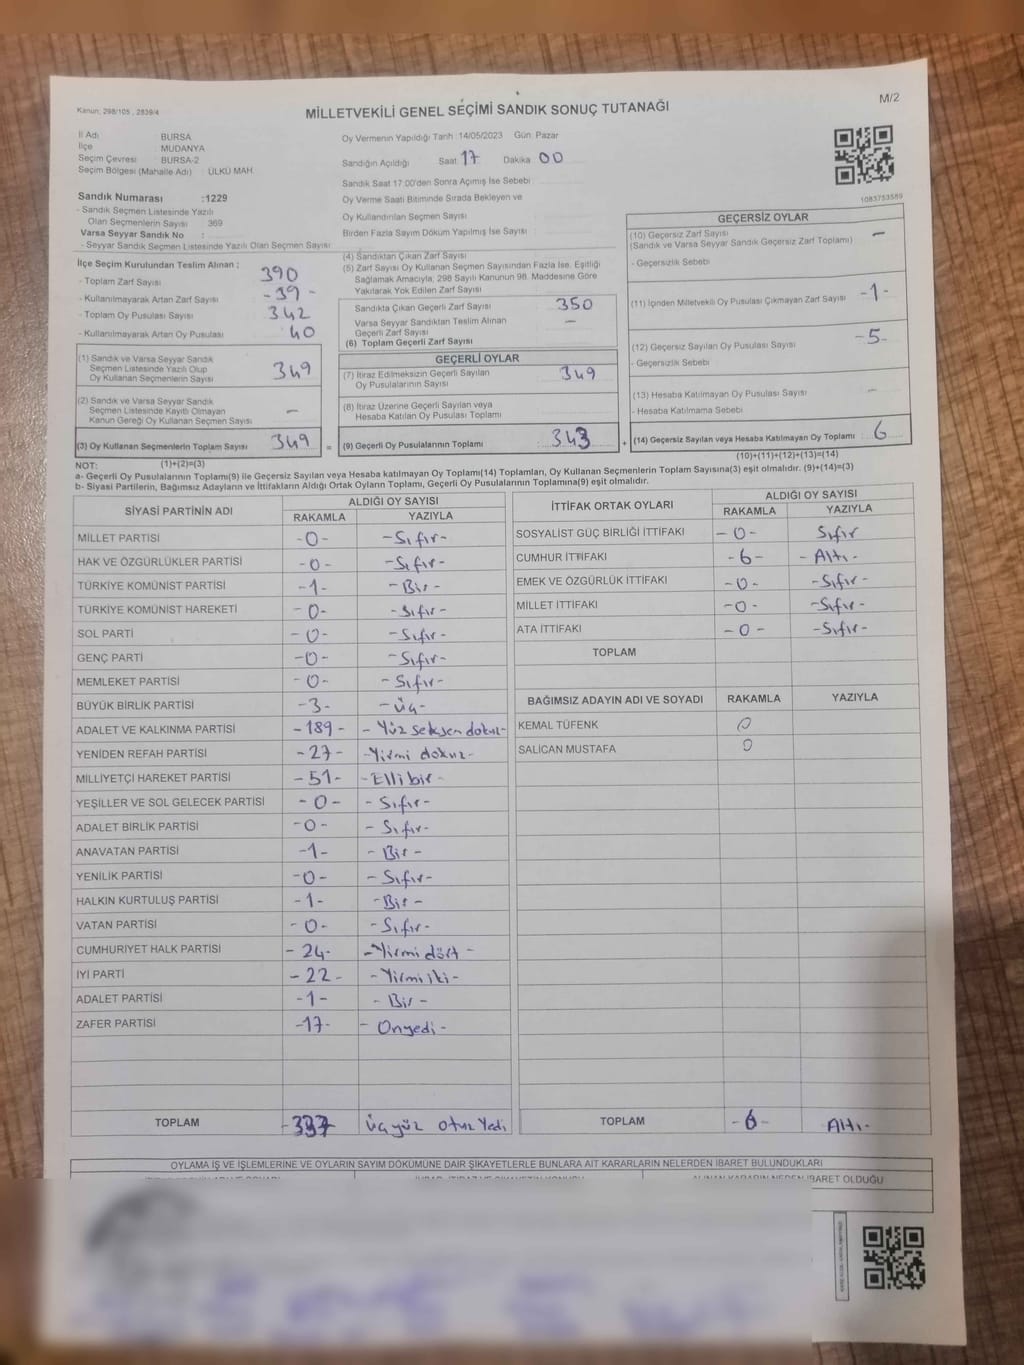 Kanun: 298/105 , 2839/4
MİLLETVEKİLİ GENEL SEÇİMİ SANDIK SONUÇ TUTANAĞI
M/2
İl Adı BURSA
İlçe MUDANYA
Seçim Çevresi BURSA-2
Seçim Bölgesi (Mahalle Adı) : ÜLKÜ MAH.
Sandık Numarası :1229
- Sandık Seçmen Listesinde Yazılı
Olan Seçmenlerin Sayısı 369
Varsa Seyyar Sandık No :
- Seyyar Sandık Seçmen Listesinde Yazılı Olan Seçmen Sayısı
Oy Vermenin Yapıldığı Tarih :14/05/2023 Gün: Pazar
Sandığın Açıldığı Saat 17 Dakika 00
Sandık Saat 17:00'den Sonra Açımış İse Sebebi
Oy Verme Saati Bitiminde Sırada Bekleyen ve
Oy Kullandırılan Seçmen Sayısı
Birden Fazla Sayım Döküm Yapılmış İse Sayısı
1083753589
İlçe Seçim Kurulundan Teslim Alınan ;
- Toplam Zarf Sayısı 390
- Kullanılmayarak Artan Zarf Sayısı -39-
- Toplam Oy Pusulası Sayısı 342
- Kullanılmayarak Artan Oy Pusulası 40
(1) Sandık ve Varsa Seyyar Sandık
Seçmen Listesinde Yazılı Olup
Oy Kullanan Seçmenlerin Sayısı 349
(2) Sandık ve Varsa Seyyar Sandık
Seçmen Listesinde Kayıtlı Olmayan
Kanun Gereği Oy Kullanan Seçmen Sayısı -
(3) Oy Kullanan Seçmenlerin Toplam Sayısı 349 =
(4) Sandıktan Çıkan Zarf Sayısı
(5) Zarf Sayısı Oy Kullanan Seçmen Sayısından Fazla İse, Eşitliği
Sağlamak Amacıyla, 298 Sayılı Kanunun 98. Maddesine Göre
Yakılarak Yok Edilen Zarf Sayısı
Sandıkta Çıkan Geçerli Zarf Sayısı 350
Varsa Seyyar Sandıktan Teslim Alınan
Geçerli Zarf Sayısı -
(6) Toplam Geçerli Zarf Sayısı
GEÇERLİ OYLAR
(7) İtiraz Edilmeksizin Geçerli Sayılan
Oy Pusulalarının Sayısı 349
(8) İtiraz Üzerine Geçerli Sayılan veya
Hesaba Katılan Oy Pusulası Toplamı
(9) Geçerli Oy Pusulalarının Toplamı : 343 +
GEÇERSİZ OYLAR
(10) Geçersiz Zarf Sayısı -
(Sandık ve Varsa Seyyar Sandık Geçersiz Zarf Toplamı)
- Geçersizlik Sebebi
(11) İçinden Milletvekili Oy Pusulası Çıkmayan Zarf Sayısı -1-
(12) Geçersiz Sayılan Oy Pusulası Sayısı -5-
- Geçersizlik Sebebi
(13) Hesaba Katılmayan Oy Pusulası Sayısı -
- Hesaba Katılmama Sebebi
(14) Geçersiz Sayılan veya Hesaba Katılmayan Oy Toplamı 6
NOT: (1)+(2)=(3) (10)+(11)+(12)+(13)=(14)
a- Geçerli Oy Pusulalarının Toplamı(9) ile Geçersiz Sayılan veya Hesaba katılmayan Oy Toplamı(14) Toplamları, Oy Kullanan Seçmenlerin Toplam Sayısına(3) eşit olmalıdır. (9)+(14)=(3)
b- Siyasi Partilerin, Bağımsız Adayların ve İttifakların Aldığı Ortak Oyların Toplamı, Geçerli Oy Pusulalarının Toplamına(9) eşit olmalıdır.
SİYASİ PARTİNİN ADI ALDIĞI OY SAYISI
RAKAMLA YAZIYLA
MİLLET PARTİSİ -0- -Sıfır-
HAK VE ÖZGÜRLÜKLER PARTİSİ -0- -Sıfır-
TÜRKİYE KOMÜNİST PARTİSİ -1- -Bir-
TÜRKİYE KOMÜNİST HAREKETİ -0- -Sıfır-
SOL PARTİ -0- -Sıfır-
GENÇ PARTİ -0- -Sıfır-
MEMLEKET PARTİSİ -0- -Sıfır-
BÜYÜK BİRLİK PARTİSİ -3- -Üç-
ADALET VE KALKINMA PARTİSİ -189- -Yüz seksen dokuz-
YENİDEN REFAH PARTİSİ -27- -Yirmi dokuz-
MİLLİYETÇİ HAREKET PARTİSİ -51- -Elli bir-
YEŞİLLER VE SOL GELECEK PARTİSİ -0- -Sıfır-
ADALET BİRLİK PARTİSİ -0- -Sıfır-
ANAVATAN PARTİSİ -1- -Bir-
YENİLİK PARTİSİ -0- -Sıfır-
HALKIN KURTULUŞ PARTİSİ -1- -Bir-
VATAN PARTİSİ -0- -Sıfır-
CUMHURİYET HALK PARTİSİ -24- -Yirmi dört-
İYİ PARTİ -22- -Yirmi iki-
ADALET PARTİSİ -1- -Bir-
ZAFER PARTİSİ -17- -Onyedi-
TOPLAM -337 Üçyüz otuz Yedi
İTTİFAK ORTAK OYLARI ALDIĞI OY SAYISI
RAKAMLA YAZIYLA
SOSYALİST GÜÇ BİRLİĞİ İTTİFAKI -0- Sıfır
CUMHUR İTTİFAKI -6- -Altı-
EMEK VE ÖZGÜRLÜK İTTİFAKI -0- -Sıfır-
MİLLET İTTİFAKI -0- -Sıfır-
ATA İTTİFAKI -0- -Sıfır-
TOPLAM
BAĞIMSIZ ADAYIN ADI VE SOYADI RAKAMLA YAZIYLA
KEMAL TÜFENK 0
SALİCAN MUSTAFA 0
TOPLAM -6- Altı-
OYLAMA İŞ VE İŞLEMLERİNE VE OYLARIN SAYIM DÖKÜMÜNE DAİR ŞİKAYETLERLE BUNLARA AİT KARARLARIN NELERDEN İBARET BULUNDUKLARI
ALINAN KARARIN NEDEN İBARET OLDUĞU